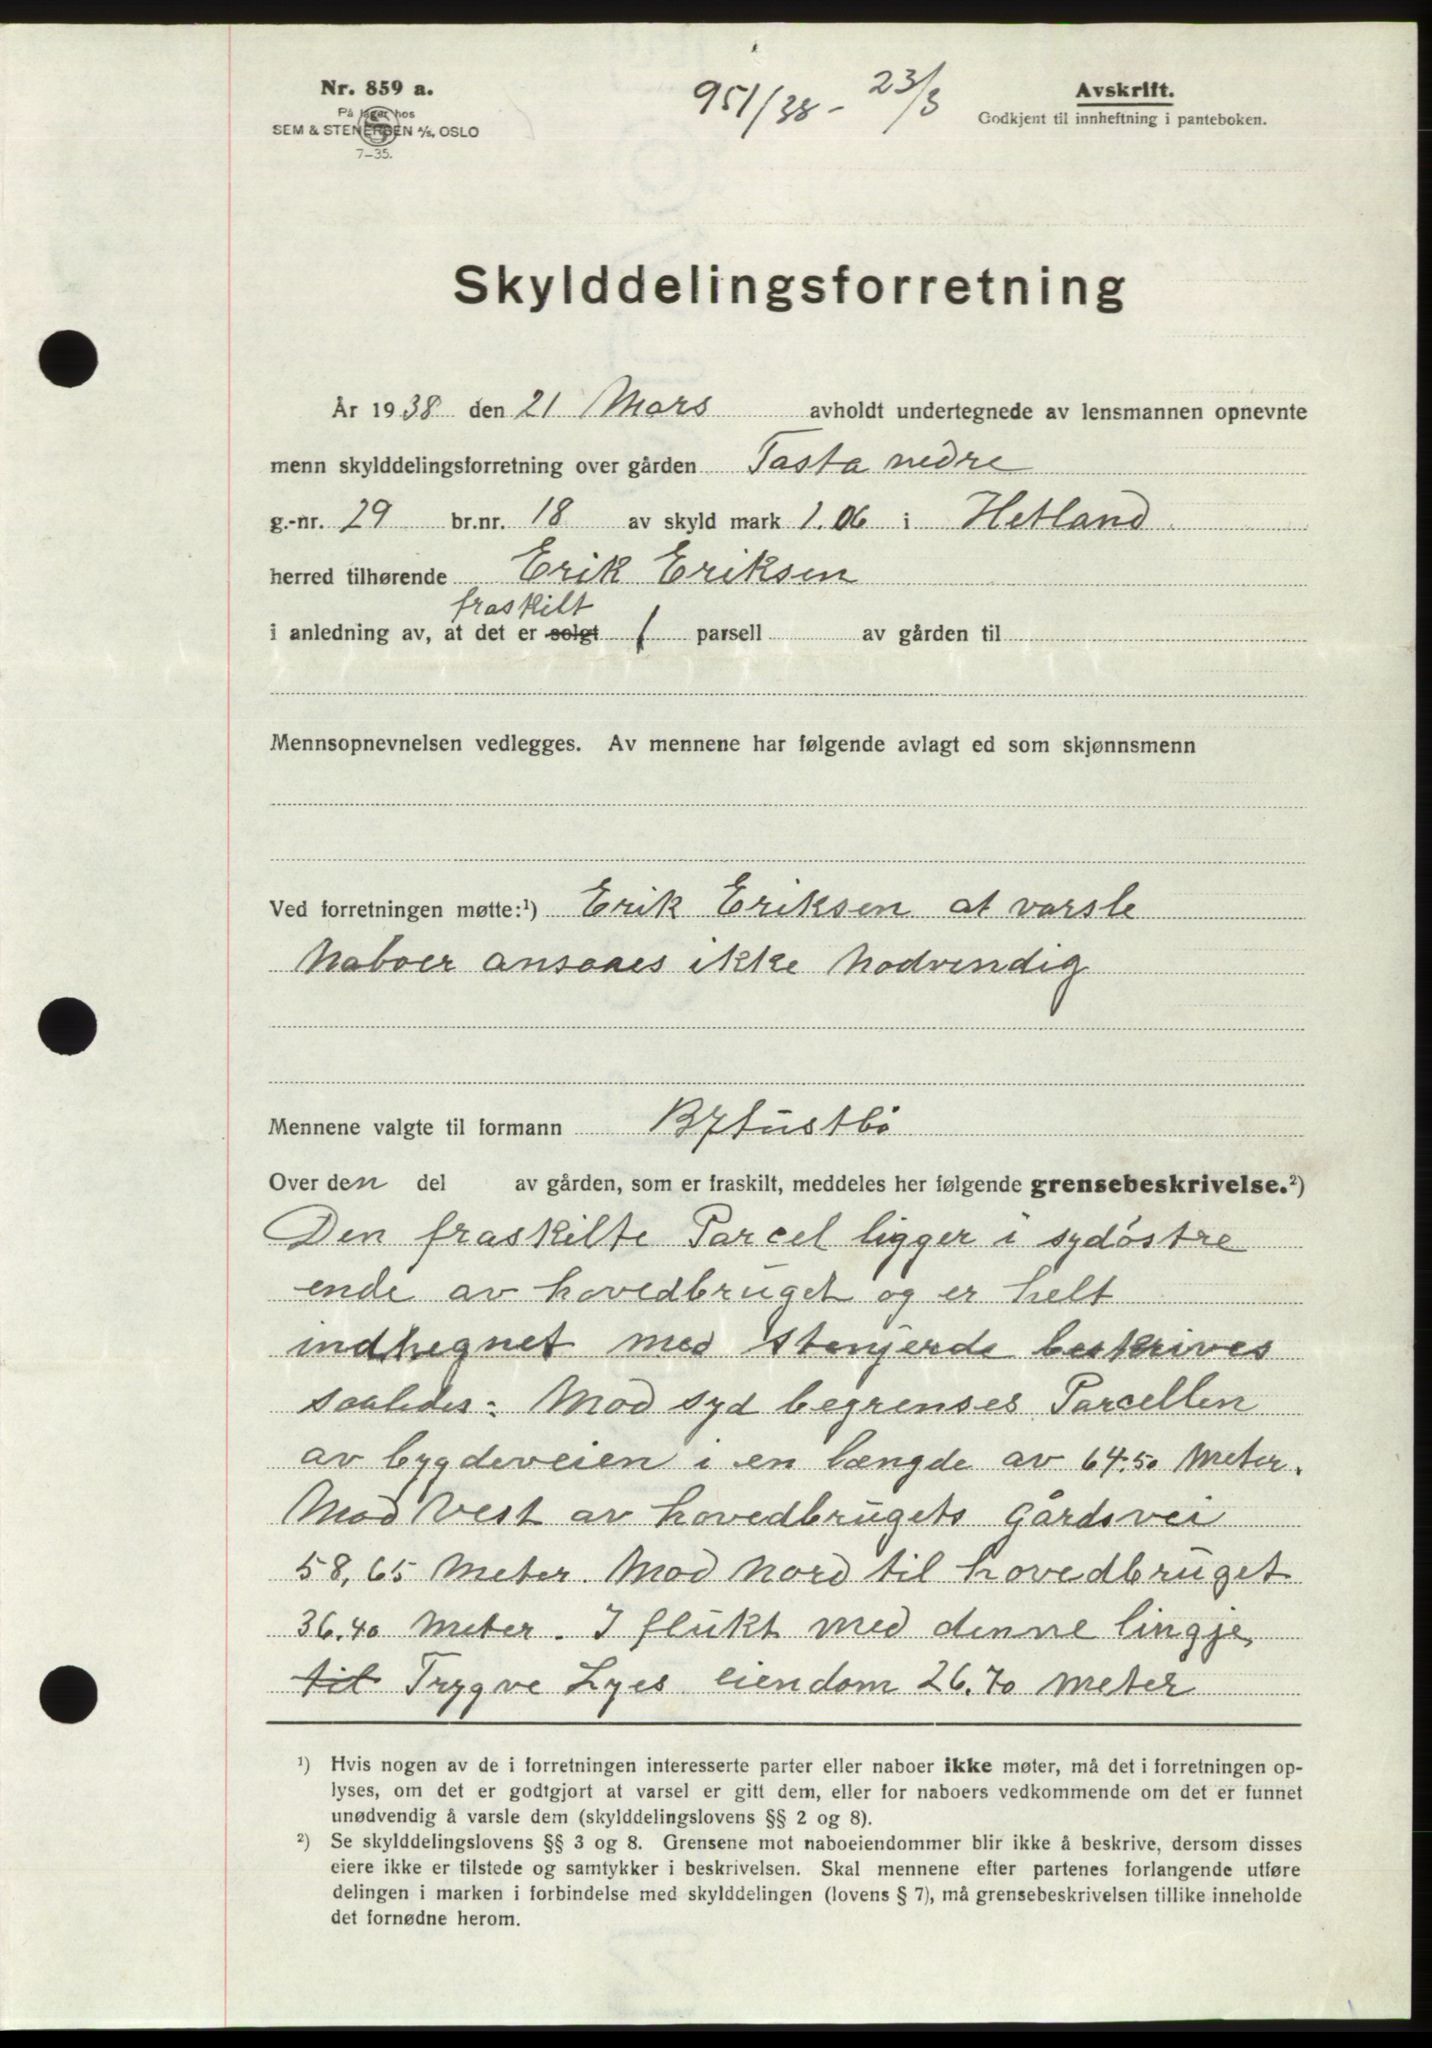 Nr. 859 a.
På lager hos
SEM & STENERSEN A/S, OSLO
7-35.
951/38 - 23/3
Avskrift.
Godkjent til innheftning i panteboken.
Skylddelingsforretning
År 1938 den 21 Mars avholdt undertegnede av lensmannen opnevnte
menn skylddelingsforretning over gården Tasta nedre
g.-nr. 29 br.nr. 18 av skyld mark 1.06 i Hetland
herred tilhørende Erik Eriksen
fraskilt
i anledning av, at det er solgt 1 parsell av gården til
Mennsopnevnelsen vedlegges. Av mennene har følgende avlagt ed som skjønnsmenn
Ved forretningen møtte:¹) Erik Eriksen at varsle
Naboer ansaaes ikke nodvendig
Mennene valgte til formann
Over den del av gården, som er fraskilt, meddeles her følgende grensebeskrivelse.²)
Den fraskilte Parcel ligger i sydøstre
ende av hovedbruget og er helt
indhegnet med stenjerde beskrives
saaledes: Mod syd begrenses Parcellen
av bygdeveien i en længde av 64.50 Meter.
Mod Vest av hovedbrugets gårdsvei
58,65 Meter. Mod Nord til hovedbruget
36.40 Meter. I flukt med denne lingje,
til Trygve Lyes eiendom 26.70 Meter
¹) Hvis nogen av de i forretningen interesserte parter eller naboer ikke møter, må det i forretningen op-
lyses, om det er godtgjort at varsel er gitt dem, eller for naboers vedkommende om det er funnet
unødvendig å varsle dem (skylddelingslovens §§ 2 og 8).
²) Se skylddelingslovens §§ 3 og 8. Grensene mot naboeiendommer blir ikke å beskrive, dersom disses
eiere ikke er tilstede og samtykker i beskrivelsen. Skal mennene efter partenes forlangende utføre
delingen i marken i forbindelse med skylddelingen (lovens § 7), må grensebeskrivelsen tillike inneholde
det fornødne herom.